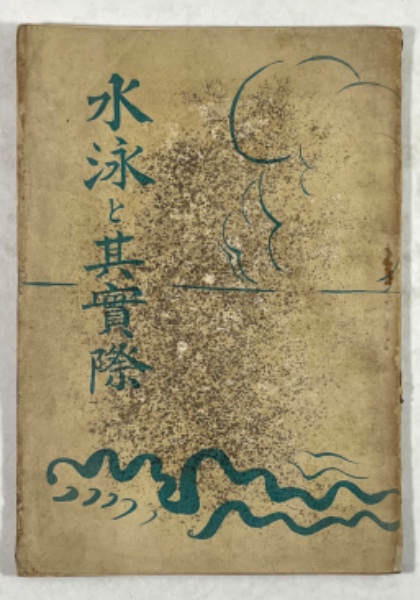 水泳と其實際